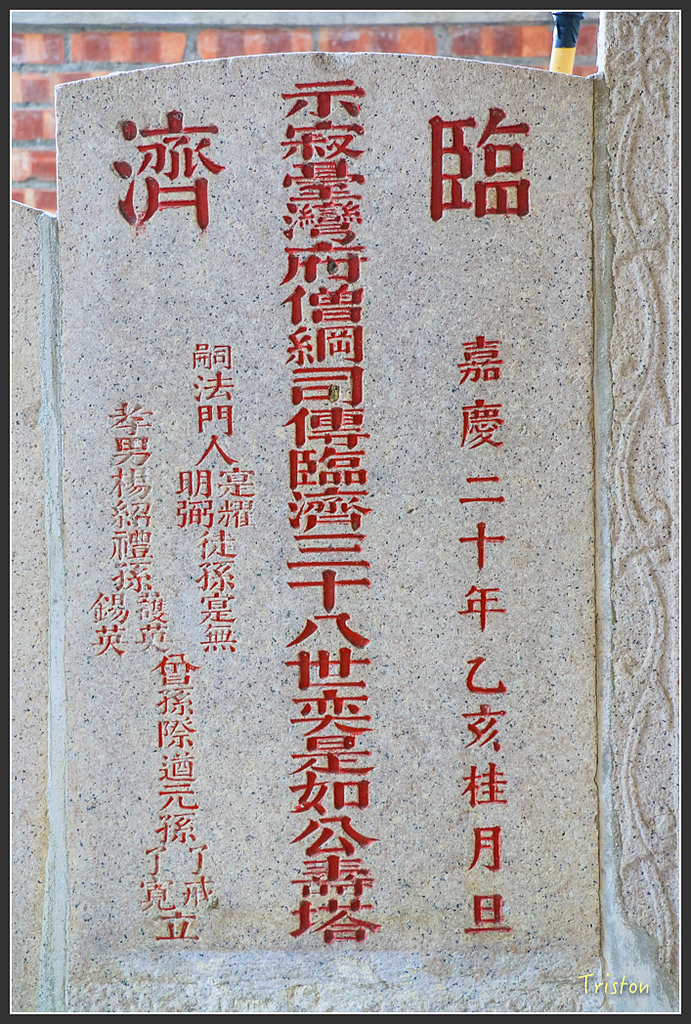 臨濟
嘉慶二十年乙亥桂月旦
示寂臺灣府僧綱司傳臨濟三十八世奕是如公壽塔
嗣法門人寔耀明弼徒孫寔無
孝男楊紹禮孫護英錫英
曾孫際遒元孫了戒了寬立
Triston